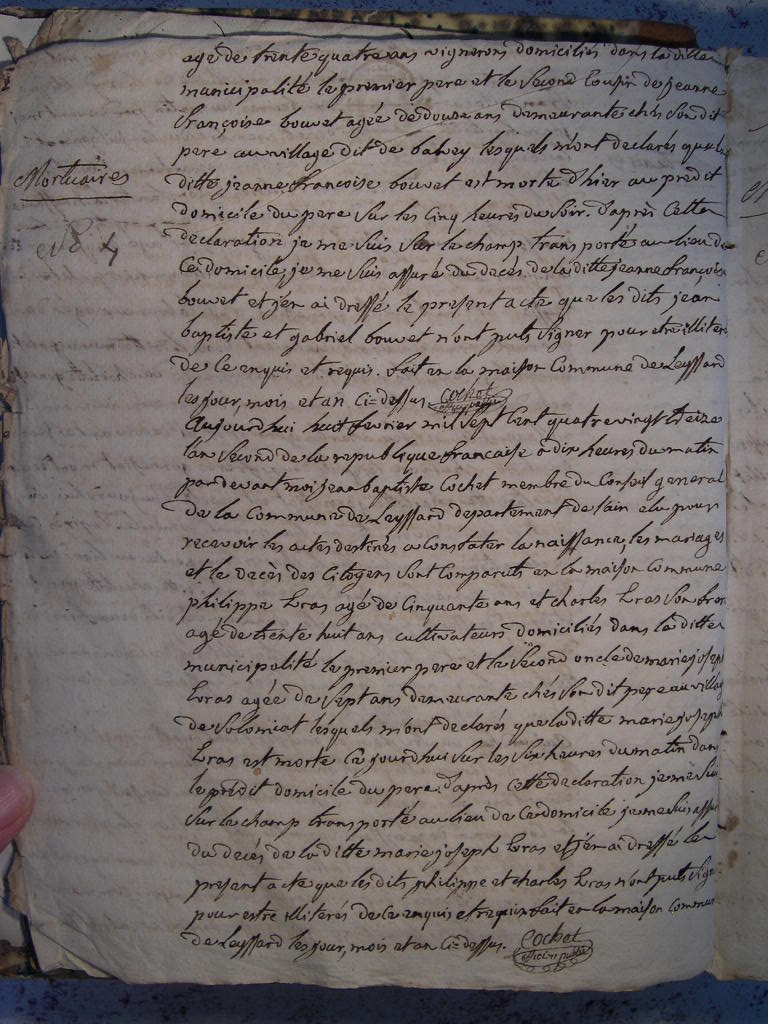 agé de trente quatre ans vignerons domiciliés dans la ditte
municipalité le premier pere et le second cousin de jeanne
françoise bouvet agée de douze ans demeurante chés son dit
pere au village dit de balvey lesquels m'ont declarés que la
Mortuaires
ditte jeanne francoise bouvet est morte d'hier au predit
domicile du pere sur les cinq heures du soir. d'après cette
N° 4
declaration je me suis sur le champ transporté au lieu de
ce domicile, je me suis assuré du decés de la ditte jeanne françoise
bouvet et j'en ai dressé le present acte que les dits jean
baptiste et gabriel bouvet n'ont puts signer pour etre illiteré
de ce enquis et requis. fait en la maison Commune de Leyssard
les jour, mois et an Ci=dessus. Cochot
officier public
Aujourd'hui huit fevrier mil sept cent quatre vingt treize
l'an second de la republique francaise a dix heures du matin
pardevant moi jean baptiste Cochot membre du Conseil general
de la Commune de Leyssard departement de l'ain elu pour
recevoir les actes destinés a Constater la naissance, les mariages
et le decès des Citoyens sont Comparuts en la maison Commune
philippe Eras agé de Cinquante ans et charles Eras son frere
agé de trente huit ans cultivateurs domiciliés dans la ditte
municipalité le premier pere et le second oncle de marie joseph
Eras agée de sept ans demeurante chés son dit pere au village
de Solomiat lesquels m'ont declarés que la ditte marie joseph
Eras est morte ce jourd'hui sur les six heures du matin dans
le predit domicile du pere. d'après cette declaration je me suis
sur le champ transporté au lieu de ce domicile je me suis assuré
du decés de la ditte marie joseph Eras et j'en ai dressé le
present acte que les dits philippe et charles Eras n'ont puts signer
pour estre illiterés de ce enquis et requis fait en la maison Commune
de Leyssard les jour, mois et an Ci=dessus. Cochot
officier public